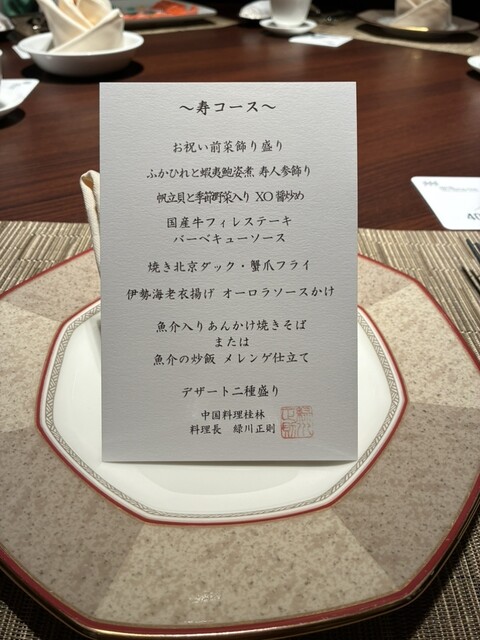 ～寿コース～
お祝い前菜飾り盛り
ふかひれと蝦夷鮑姿煮 寿人参飾り
帆立貝と季節野菜入り XO醤炒め
国産牛フィレステーキ
バーベキューソース
焼き北京ダック・蟹爪フライ
伊勢海老衣揚げ オーロラソースかけ
魚介入りあんかけ焼きそば
または
魚介の炒飯 メレンゲ仕立て
デザート二種盛り
中国料理桂林
料理長 緑川正則